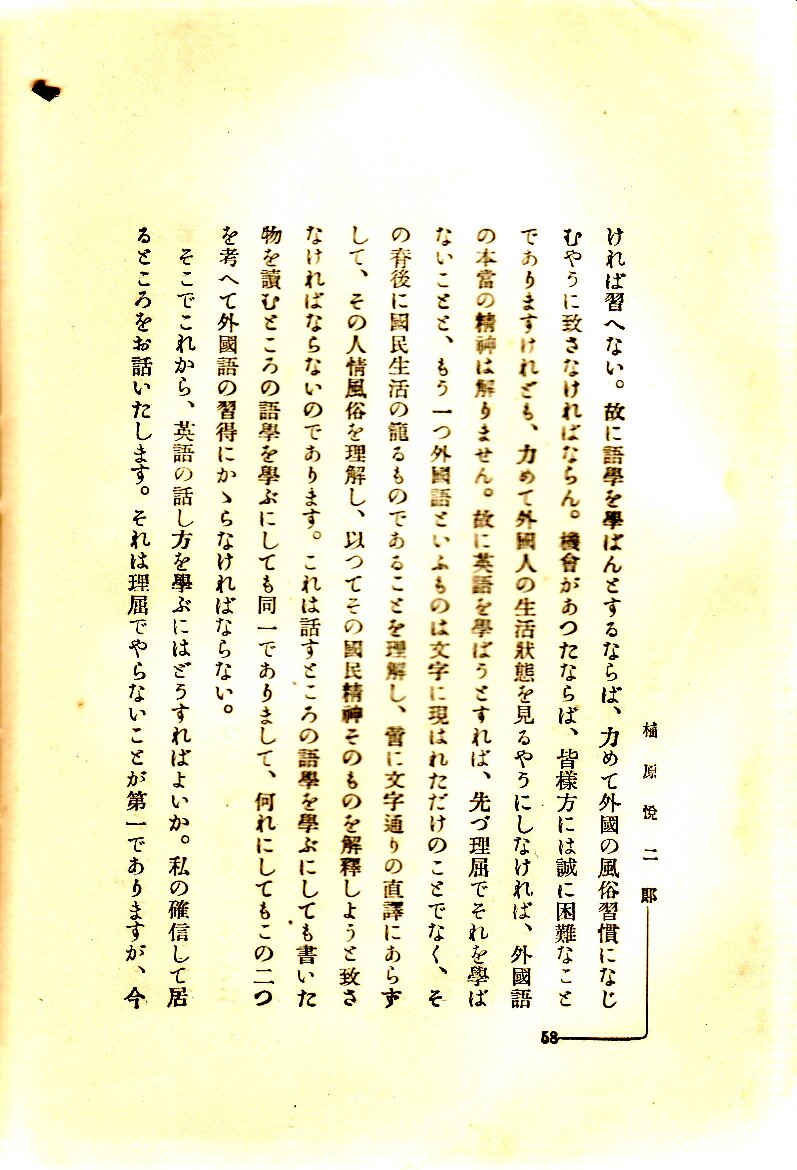 植原悦二郎
58
ければ習へない。故に語學を學ばんとするならば、力めて外國の風俗習慣になじ
むやうに致さなければならん。機會があつたならば、皆樣方には誠に困難なこと
でありますけれども、力めて外國人の生活狀態を見るやうにしなければ、外國語
の本當の精神は解りません。故に英語を學ばうとすれば、先づ理屈でそれを學ば
ないことと、もう一つ外國語といふものは文字に現はれただけのことでなく、そ
の脊後に國民生活の籠るものであることを理解し、啻に文字通りの直譯にあらず
して、その人情風俗を理解し、以つてその國民精神そのものを解釋しようと致さ
なければならないのであります。これは話すところの語學を學ぶにしても書いた
物を讀むところの語學を學ぶにしても同一でありまして、何れにしてもこの二つ
を考へて外國語の習得にかゝらなければならない。
そこでこれから、英語の話し方を學ぶにはどうすればよいか。私の確信して居
るところをお話いたします。それは理屈でやらないことが第一でありますが、今